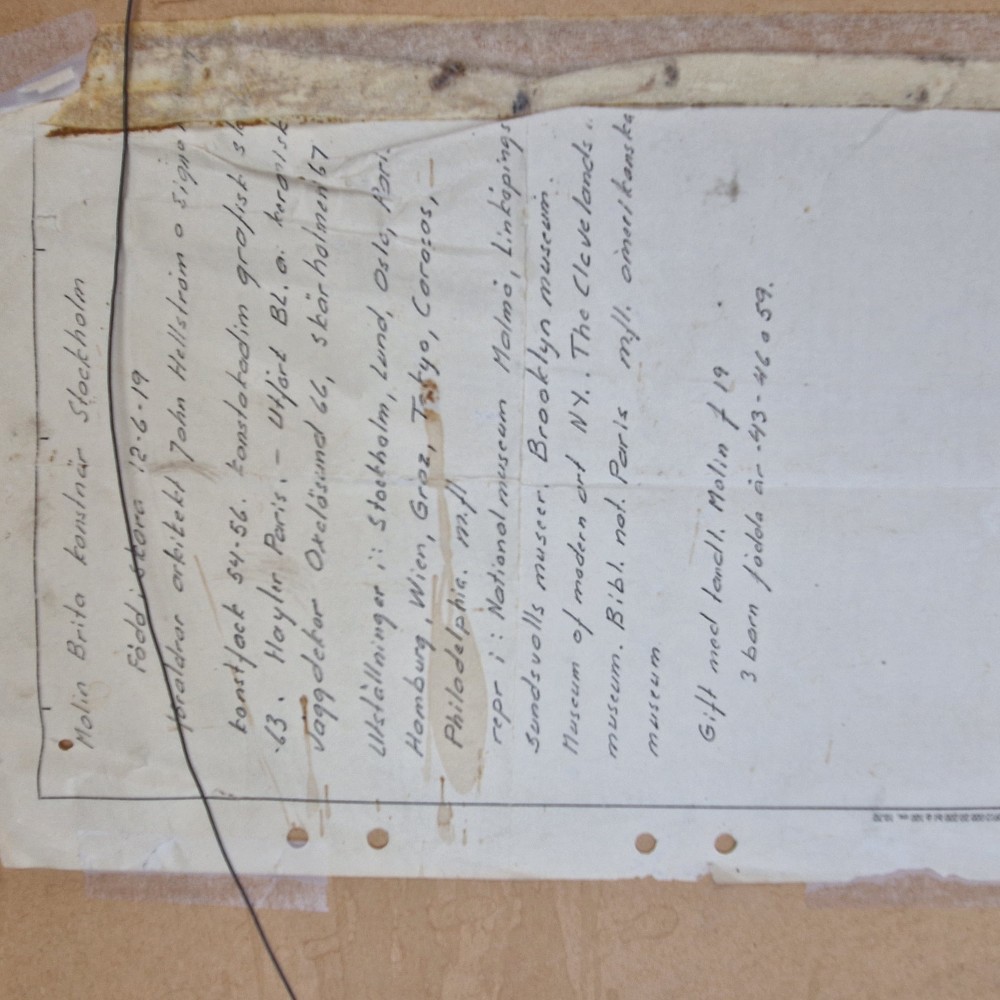 Molin Brita konstnär Stockholm
Född i Skara 12-6-19
föräldrar arkitekt John Hellström o Signe
konstfack 54-56. konstakadim grafisk
-63. Hayter Paris. - Utfört Bl. a. keramisk
väggdekor Oxelösund 66, skärholmen 67
Utställningar i: Stockholm, Lund, Oslo, Pari
Hamburg, Wien, Graz, Tokyo, Caracas,
Philadelphia. m.fl
repr i: Nationalmuseum Malmö, Linköpings
sundsvalls museer. Brooklyn museum.
Museum of modern art NY. The Clevelands
museum. Bibl. nat. Paris m.fl. amerikanska
museum.
Gift med landt. Molin f 19
3 barn födda år -43-46 o 59.